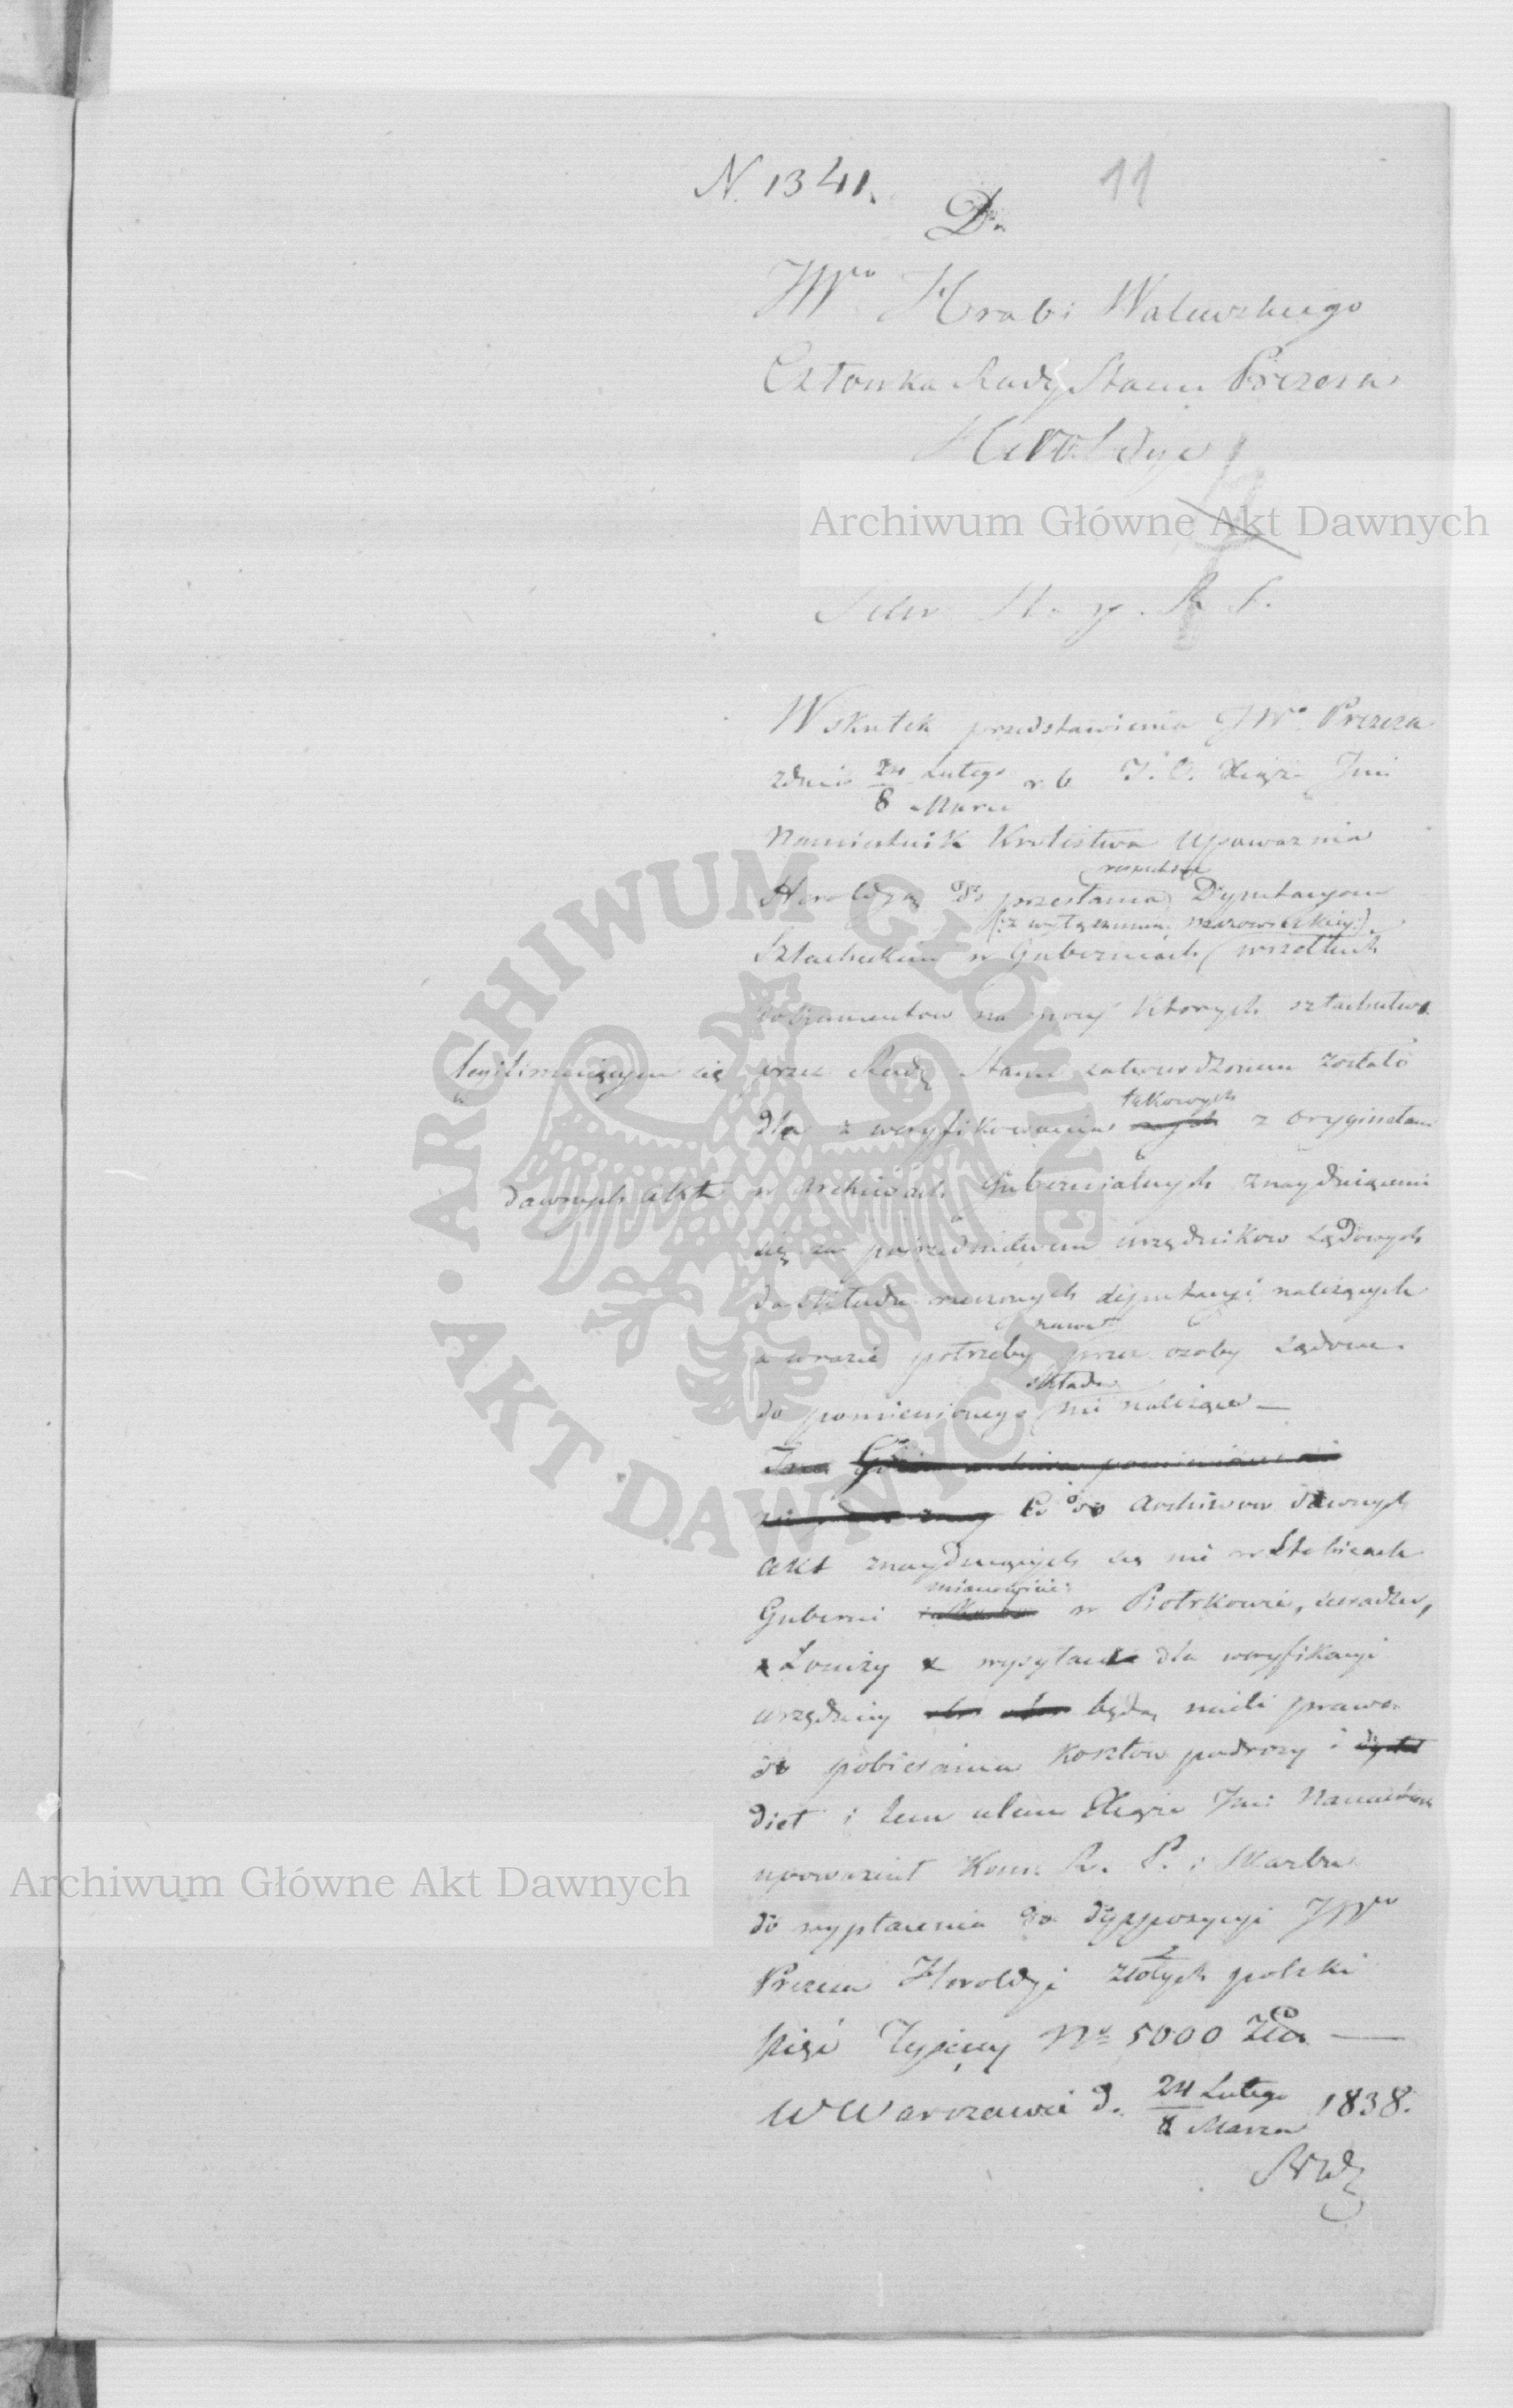 N. 1341.
11
Do
JWo Hrabi Walewskiego
Członka Rady Stanu Prezesa
Heroldyi
Archiwum Główne Akt Dawnych
Wskutek przedstawienia JWo Prezesa
z dnia 24 Lutego / 8 Marca r b J. O. Xiąże Jmć
Namiestnik Krolestwa upoważnia
Heroldyą do przesłania Deputacyom
(:z wyłączeniem Mazowieckiey:)
Szlacheckim w Guberniach wszelkich
dokumentow na mocy ktorych szlachectwo
legitimuiącym się przez Radę Stanu zatwierdzonem zostało
takowych
dla zweryfikowania z oryginałami
dawnych Akt w Archiwach Gubernialnych znayduiącemi
się za pośrednictwem urzędnikow Sądowych
do składu rzeczonych deputacyi należących
nawet
a w razie potrzeby przez osoby Sądowe
składu
do pomienionego nie należące —
Co do Archiwow dawnych
Akt znayduiących się nie w Stolicach
mianowicie:
Guberni w Piotrkowie, Sieradzu,
Łomży wysyłani dla weryfikacyi
urzędnicy będą mieli prawo
do pobierania kosztow podroży i
diet i tem celem Xiąże Jmć Namiestnik
upoważnił Kom. R. P. i Skarbu
do wypłacenia do dyspozycyi JWo
Prezesa Heroldyi złotych polskich
pięć Tysięcy No 5000
w Warszawie d. 24 Lutego / 8 Marca 1838.
Archiwum Główne Akt Dawnych
ARCHIWUM GŁÓWNE AKT DAWNYCH